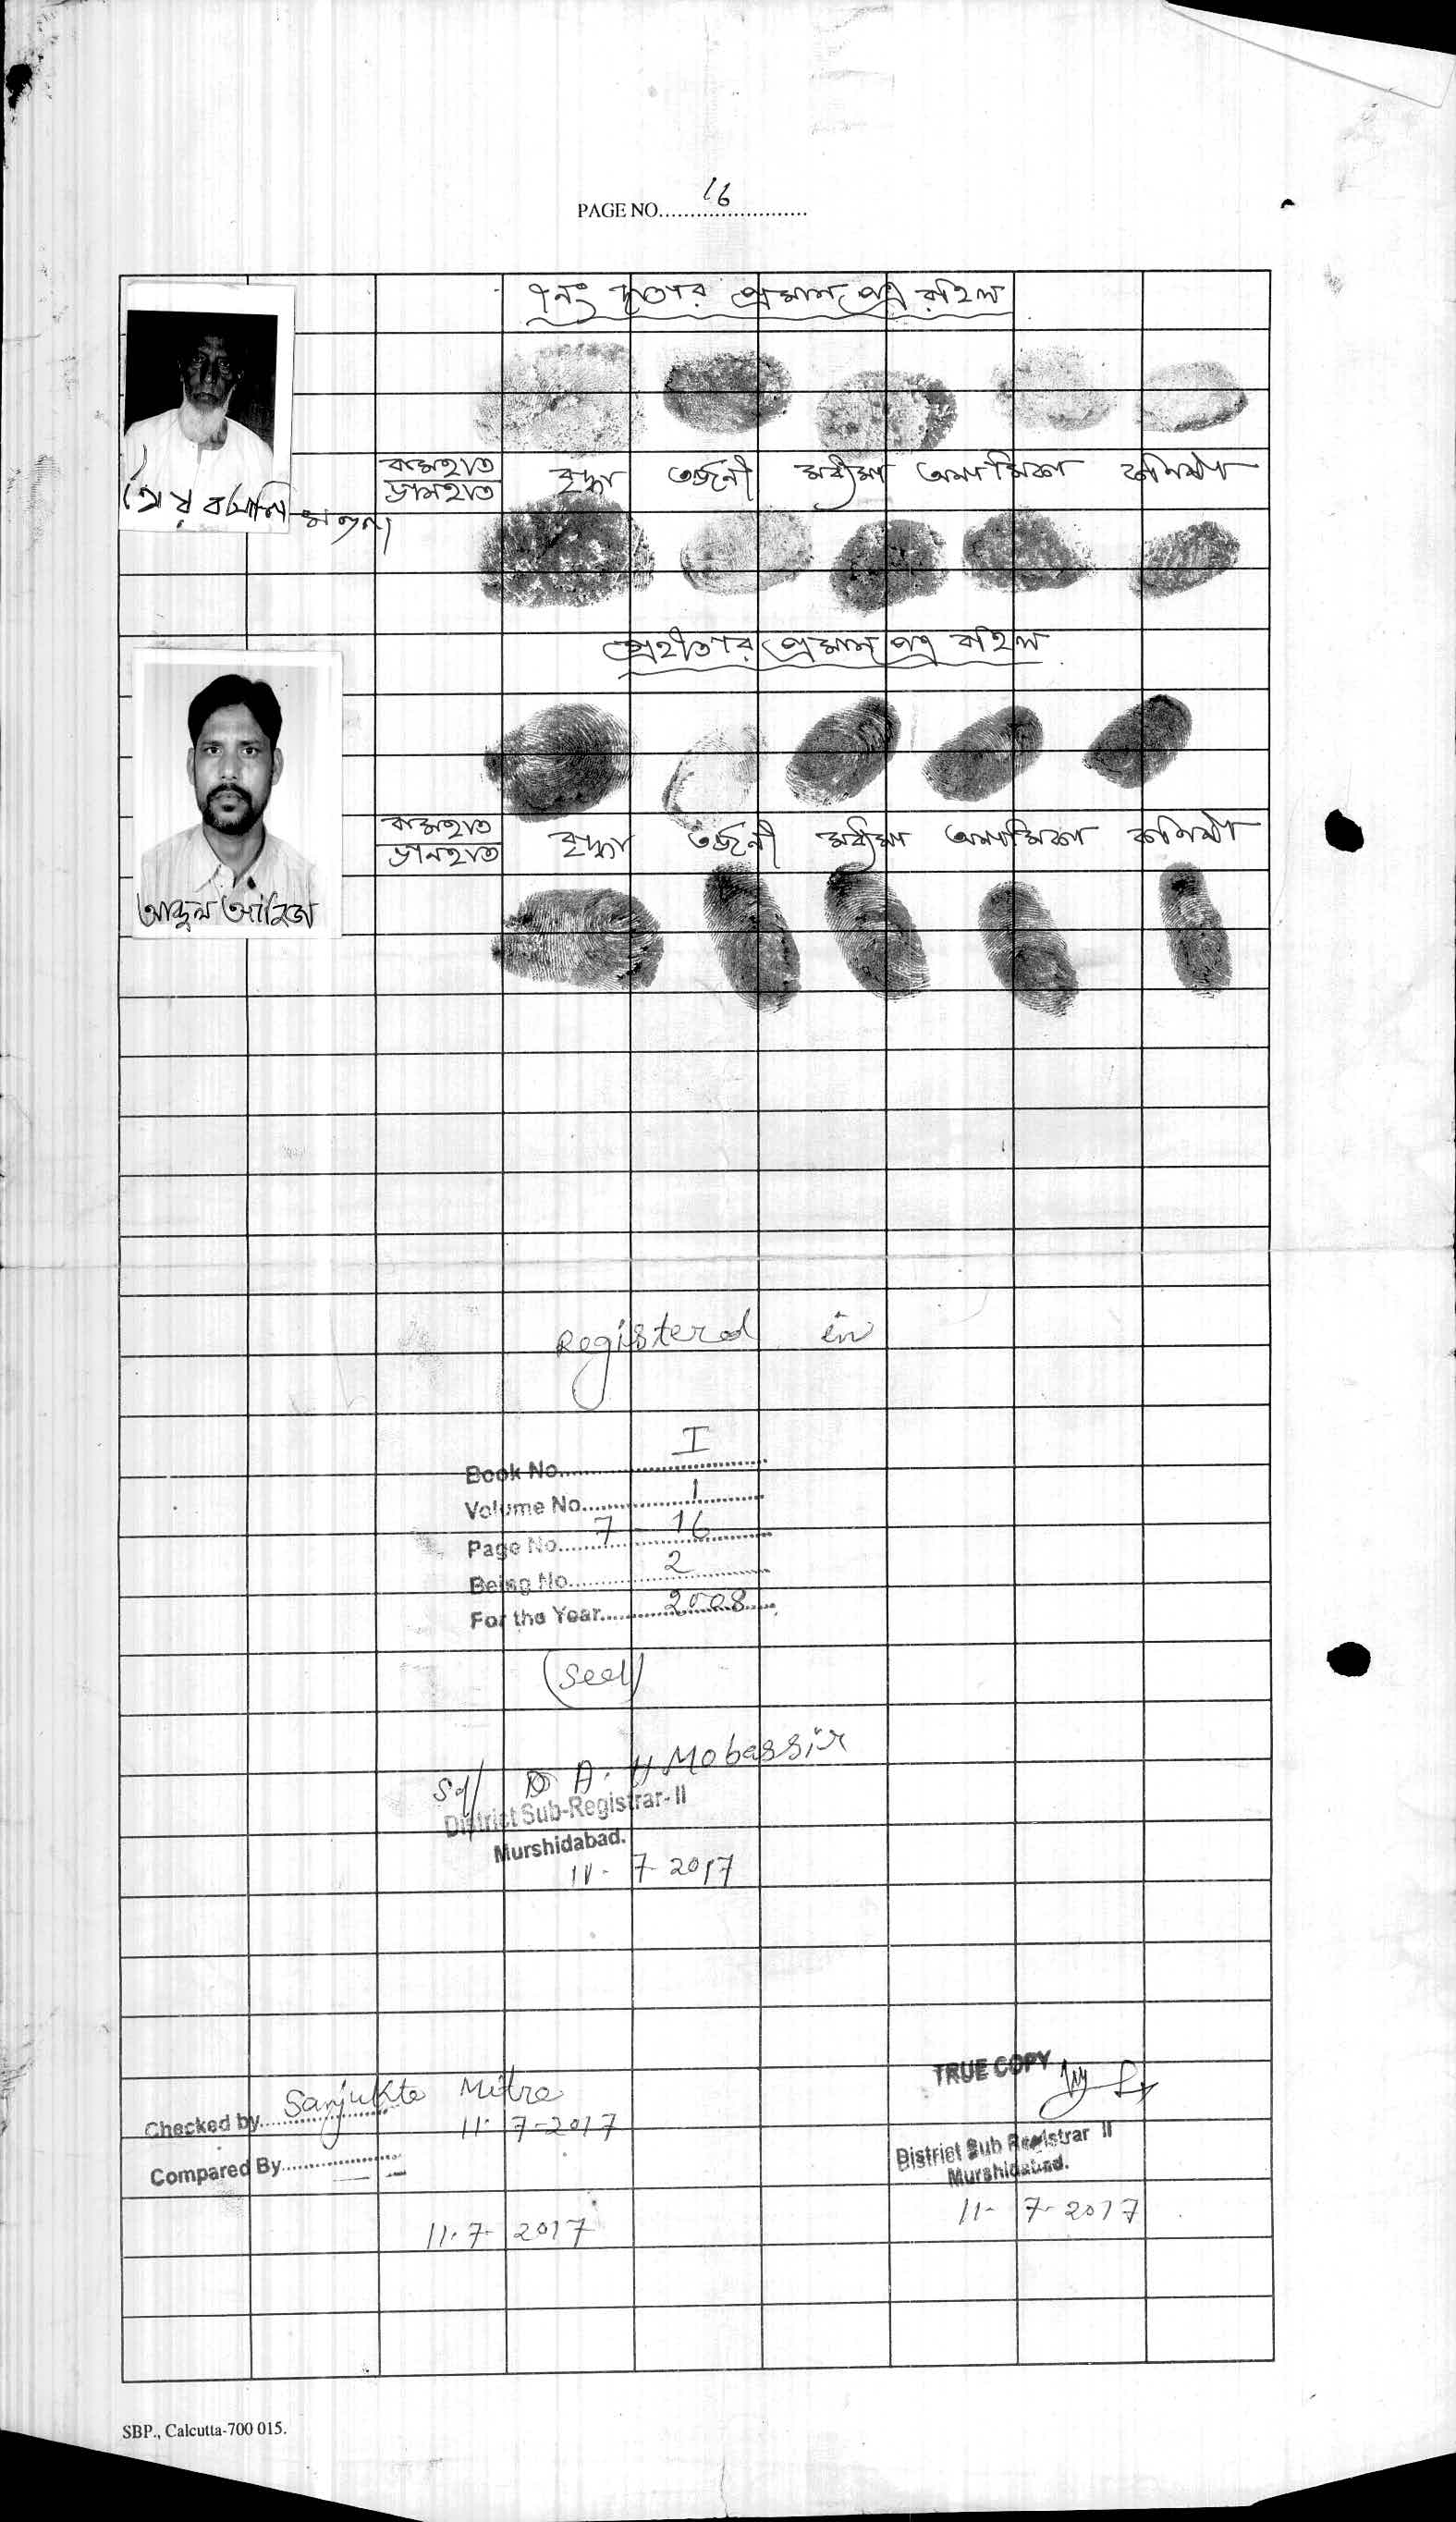 PAGE NO. 16
৭নং দাতার প্রমান পত্র রহিল
বামহাত
ডানহাত
বৃদ্ধা তর্জনী মধ্যমা অনামিকা কনিষ্ঠা
মণ্ডল
গ্রহীতার প্রমান পত্র রহিল
বামহাত
ডানহাত
বৃদ্ধা তর্জনী মধ্যমা অনামিকা কনিষ্ঠা
আব্দুল আজিজ
Registered in
Book No. I
Volume No. 1
Page No. 7 - 16
Being No. 2
For the Year 2008
(Seal)
Sd/ D A. H Mobassir
District Sub-Registrar-II
Murshidabad.
11-7-2017
TRUE COPY
Checked by Sanjukta Mitra
11-7-2017
Compared By
District Sub Registrar II
Murshidabad.
11-7-2017
11-7-2017
SBP., Calcutta-700 015.